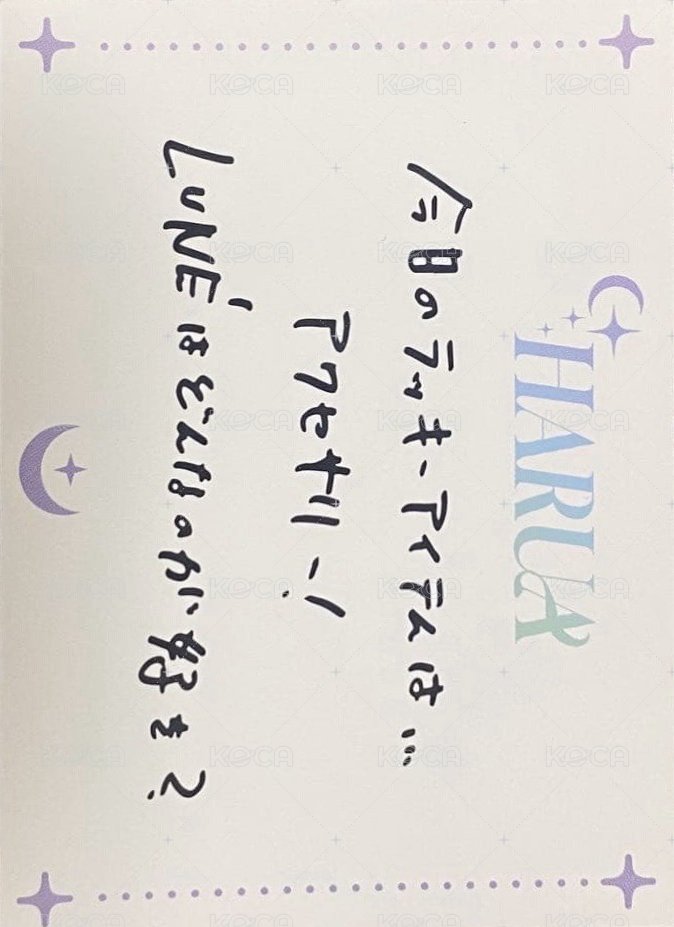 HARUA
今日のラッキーアイテムは...
アクセサリー!
LUNÉはどんなのが好き?
KOCA